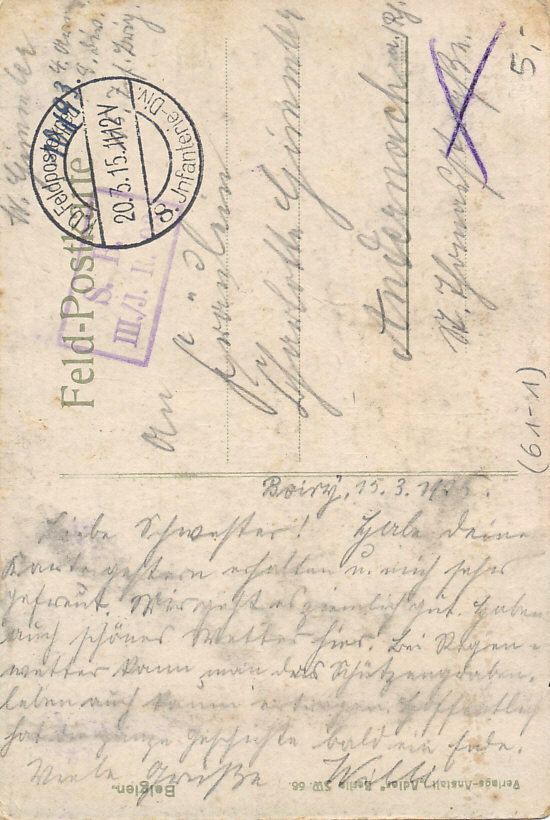 Feld-Postkarte
20.3.15. 11-12V
8. Infanterie-Div.
S. B.
III./J. R.
An
Fräulein
Charlotte Himmler
Andernach a. Rh.
5,-
(61-1)
Boiry, 15.3.1915.
Liebe Schwester! Habe deine
Karte gestern erhalten u. mich sehr
gefreut. Mir geht es ziemlich gut. Haben
auch schönes Wetter hier. Bei Regen-
wetter kann man das Schützengraben-
leben auch kaum ertragen. Hoffentlich
hat die ganze Geschichte bald ein Ende.
Viele Grüße Willi
Belgien.
Verlags-Anstalt „Adler“ Berlin SW. 68.